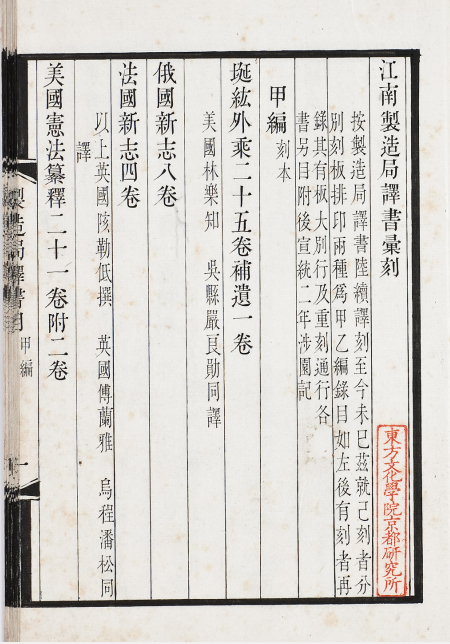 江南製造局譯書彙刻
按製造局譯書陸續譯刻至今未已茲就已刻者分
別刻板排印兩種爲甲乙編錄目如左後有刻者再
錄其有板大別行及重刻通行各
書另目附後宣統二年涉園記
甲編刻本
埏紘外乘二十五卷補遺一卷
美國林樂知 吳縣嚴良勛同譯
俄國新志八卷
法國新志四卷
以上英國陔勒低撰 英國傅蘭雅 烏程潘松同
譯
美國憲法纂釋二十一卷附二卷
製造局譯書目 甲編
一
東方文化學院京都研究所